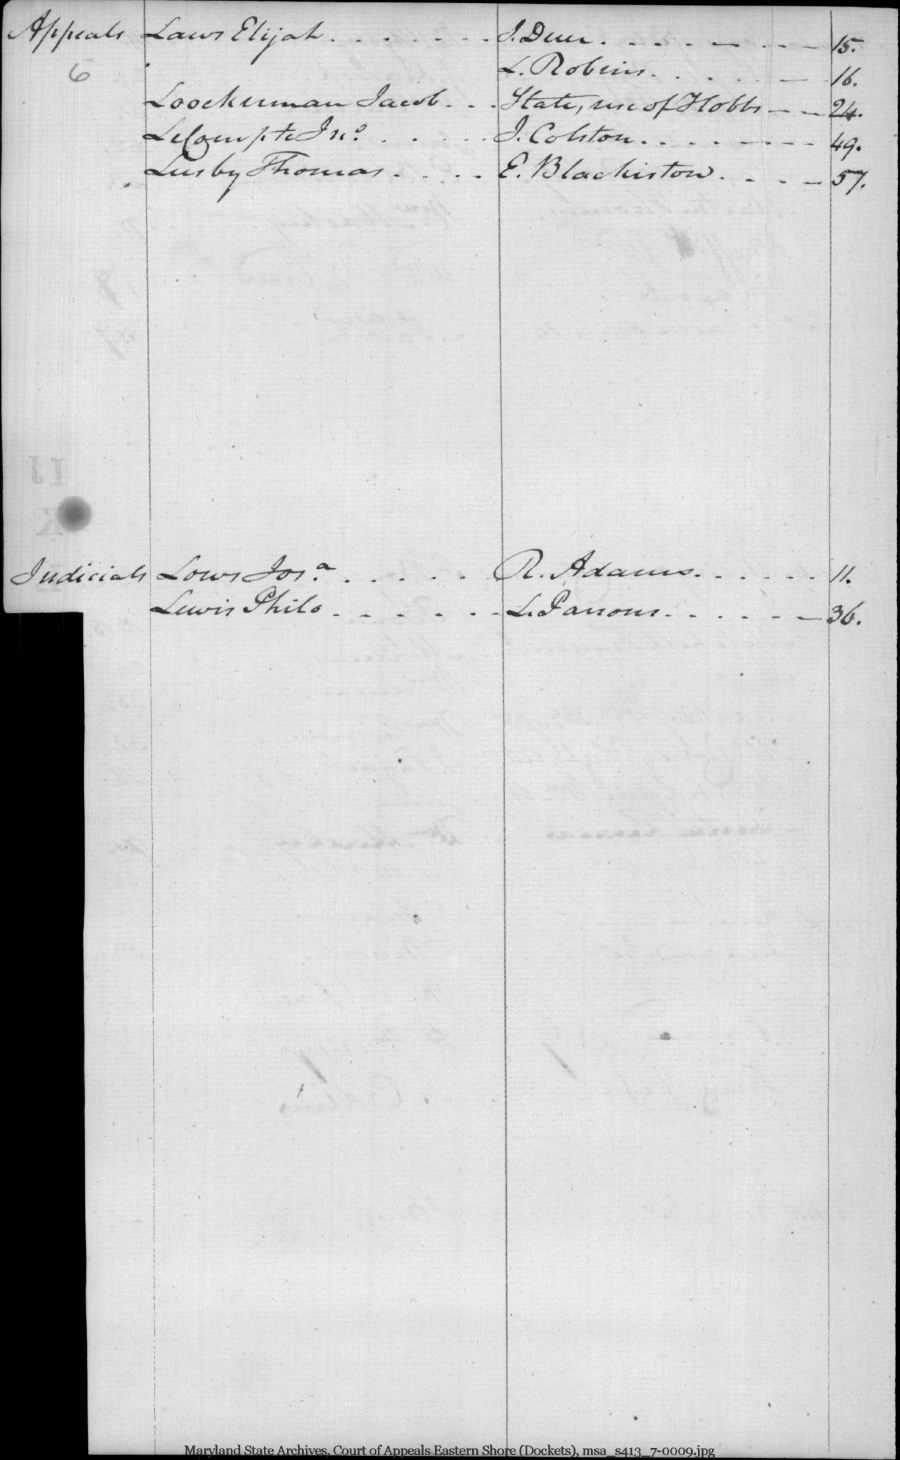 Appeals Laws Elijah . . . . . . . J. Duer . . . . . . . 15.
6 L. Robins . . . . . . 16.
Loockerman Jacob . . . State, use of Hobbs 24.
LeCompte Jno . . . . . J. Colston . . . . . . . 49.
Lusby Thomas . . . . . E. Blackiston . . . . 57.
Judicials Lows Josa . . . . . R. Adams . . . . . . 11.
Lewis Philo . . . . . . L. Parsons . . . . . . 36.
Maryland State Archives, Court of Appeals Eastern Shore (Dockets), msa_s413_7-0009.jpg